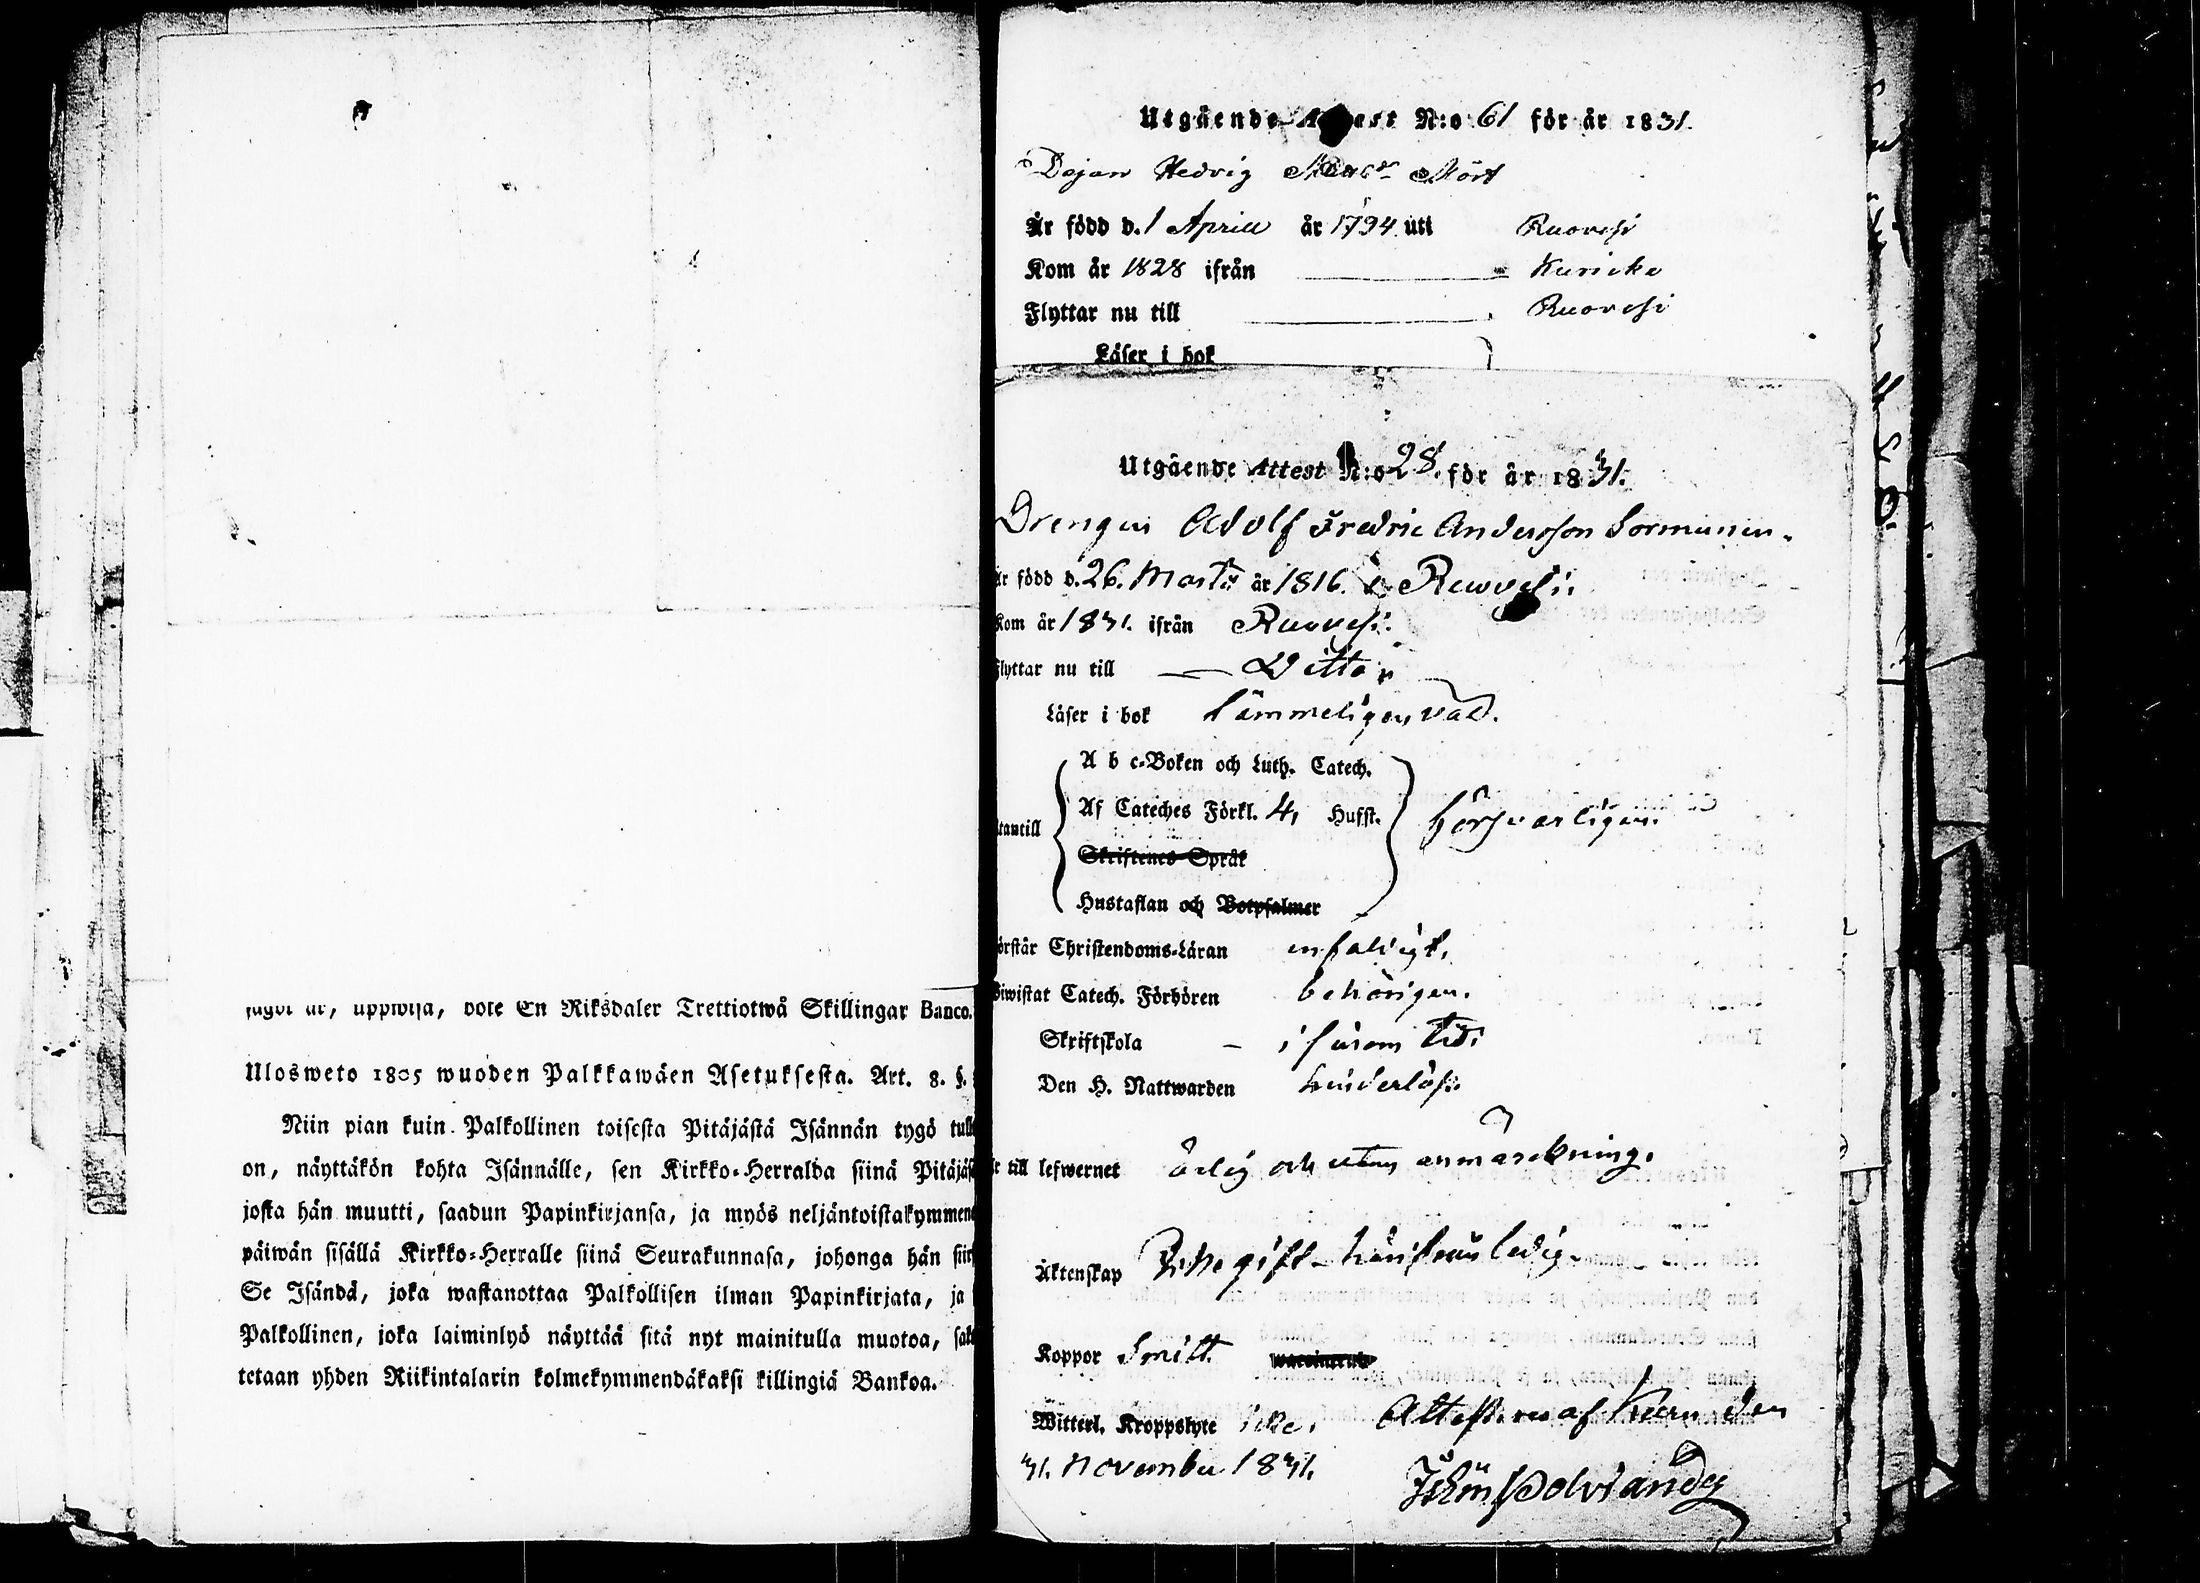 uppwisa, böte En Riksdaler Trettiotwå Skillingar Banco.
Ulosweto 1805 wuoden Palkkawäen Asetuksesta. Art. 8. §.
Niin pian kuin Palkollinen toisesta Pitäjästä Isännän tygö
on, näyttäkön kohta Isännälle, sen Kirkko-Herralda siinä
josta hän muutti, saadun Papinkirjansa, ja myös
päiwän sisällä Kirkko-Herralle siinä Seurakunnasa, johonga hän
Se Isändä, joka wastanottaa Palkollisen ilman Papinkirjata, ja
Palkollinen, joka laiminlyö näyttää sitä nyt mainitulla muotoa,
tetaan yhden Riikintalarin kolmekymmendäkaksi killingiä Bankoa.
Utgående Attest N:o 61 för år 1831.
Hedvig Mört
Är född d. 1 Aprill år 1794 uti Ruovesi
Kom år 1828 ifrån Kuricka
Flyttar nu till Ruovesi
Läser i bok
Utgående Attest N:o 28. för år 1831.
Drengen Adolf Fredric Andersson Sormunen.
är född d. 26. Martii år 1816. i Ruovesi.
Kom år 1831. ifrån Ruovesi.
Flyttar nu till Ditto
Läser i bok
A b c-Boken och Luth. Catech.
Af Cateches Förkl. 4, Hufst. försvarligen.
Utantill
Skriftenes Språk
Hustaflan och Botpsalmer
Förstår Christendoms-Läran enfaldigt.
Biwistat Catech. Förhören behörigen.
Skriftskola i sinom tid.
Den H. Nattwarden hinderlös.
Är till lefwernet ärlig och utan anmärckning.
Äktenskap ledig.
Koppor
Witterl. Kroppslyte icke. af den
31. November 1831.